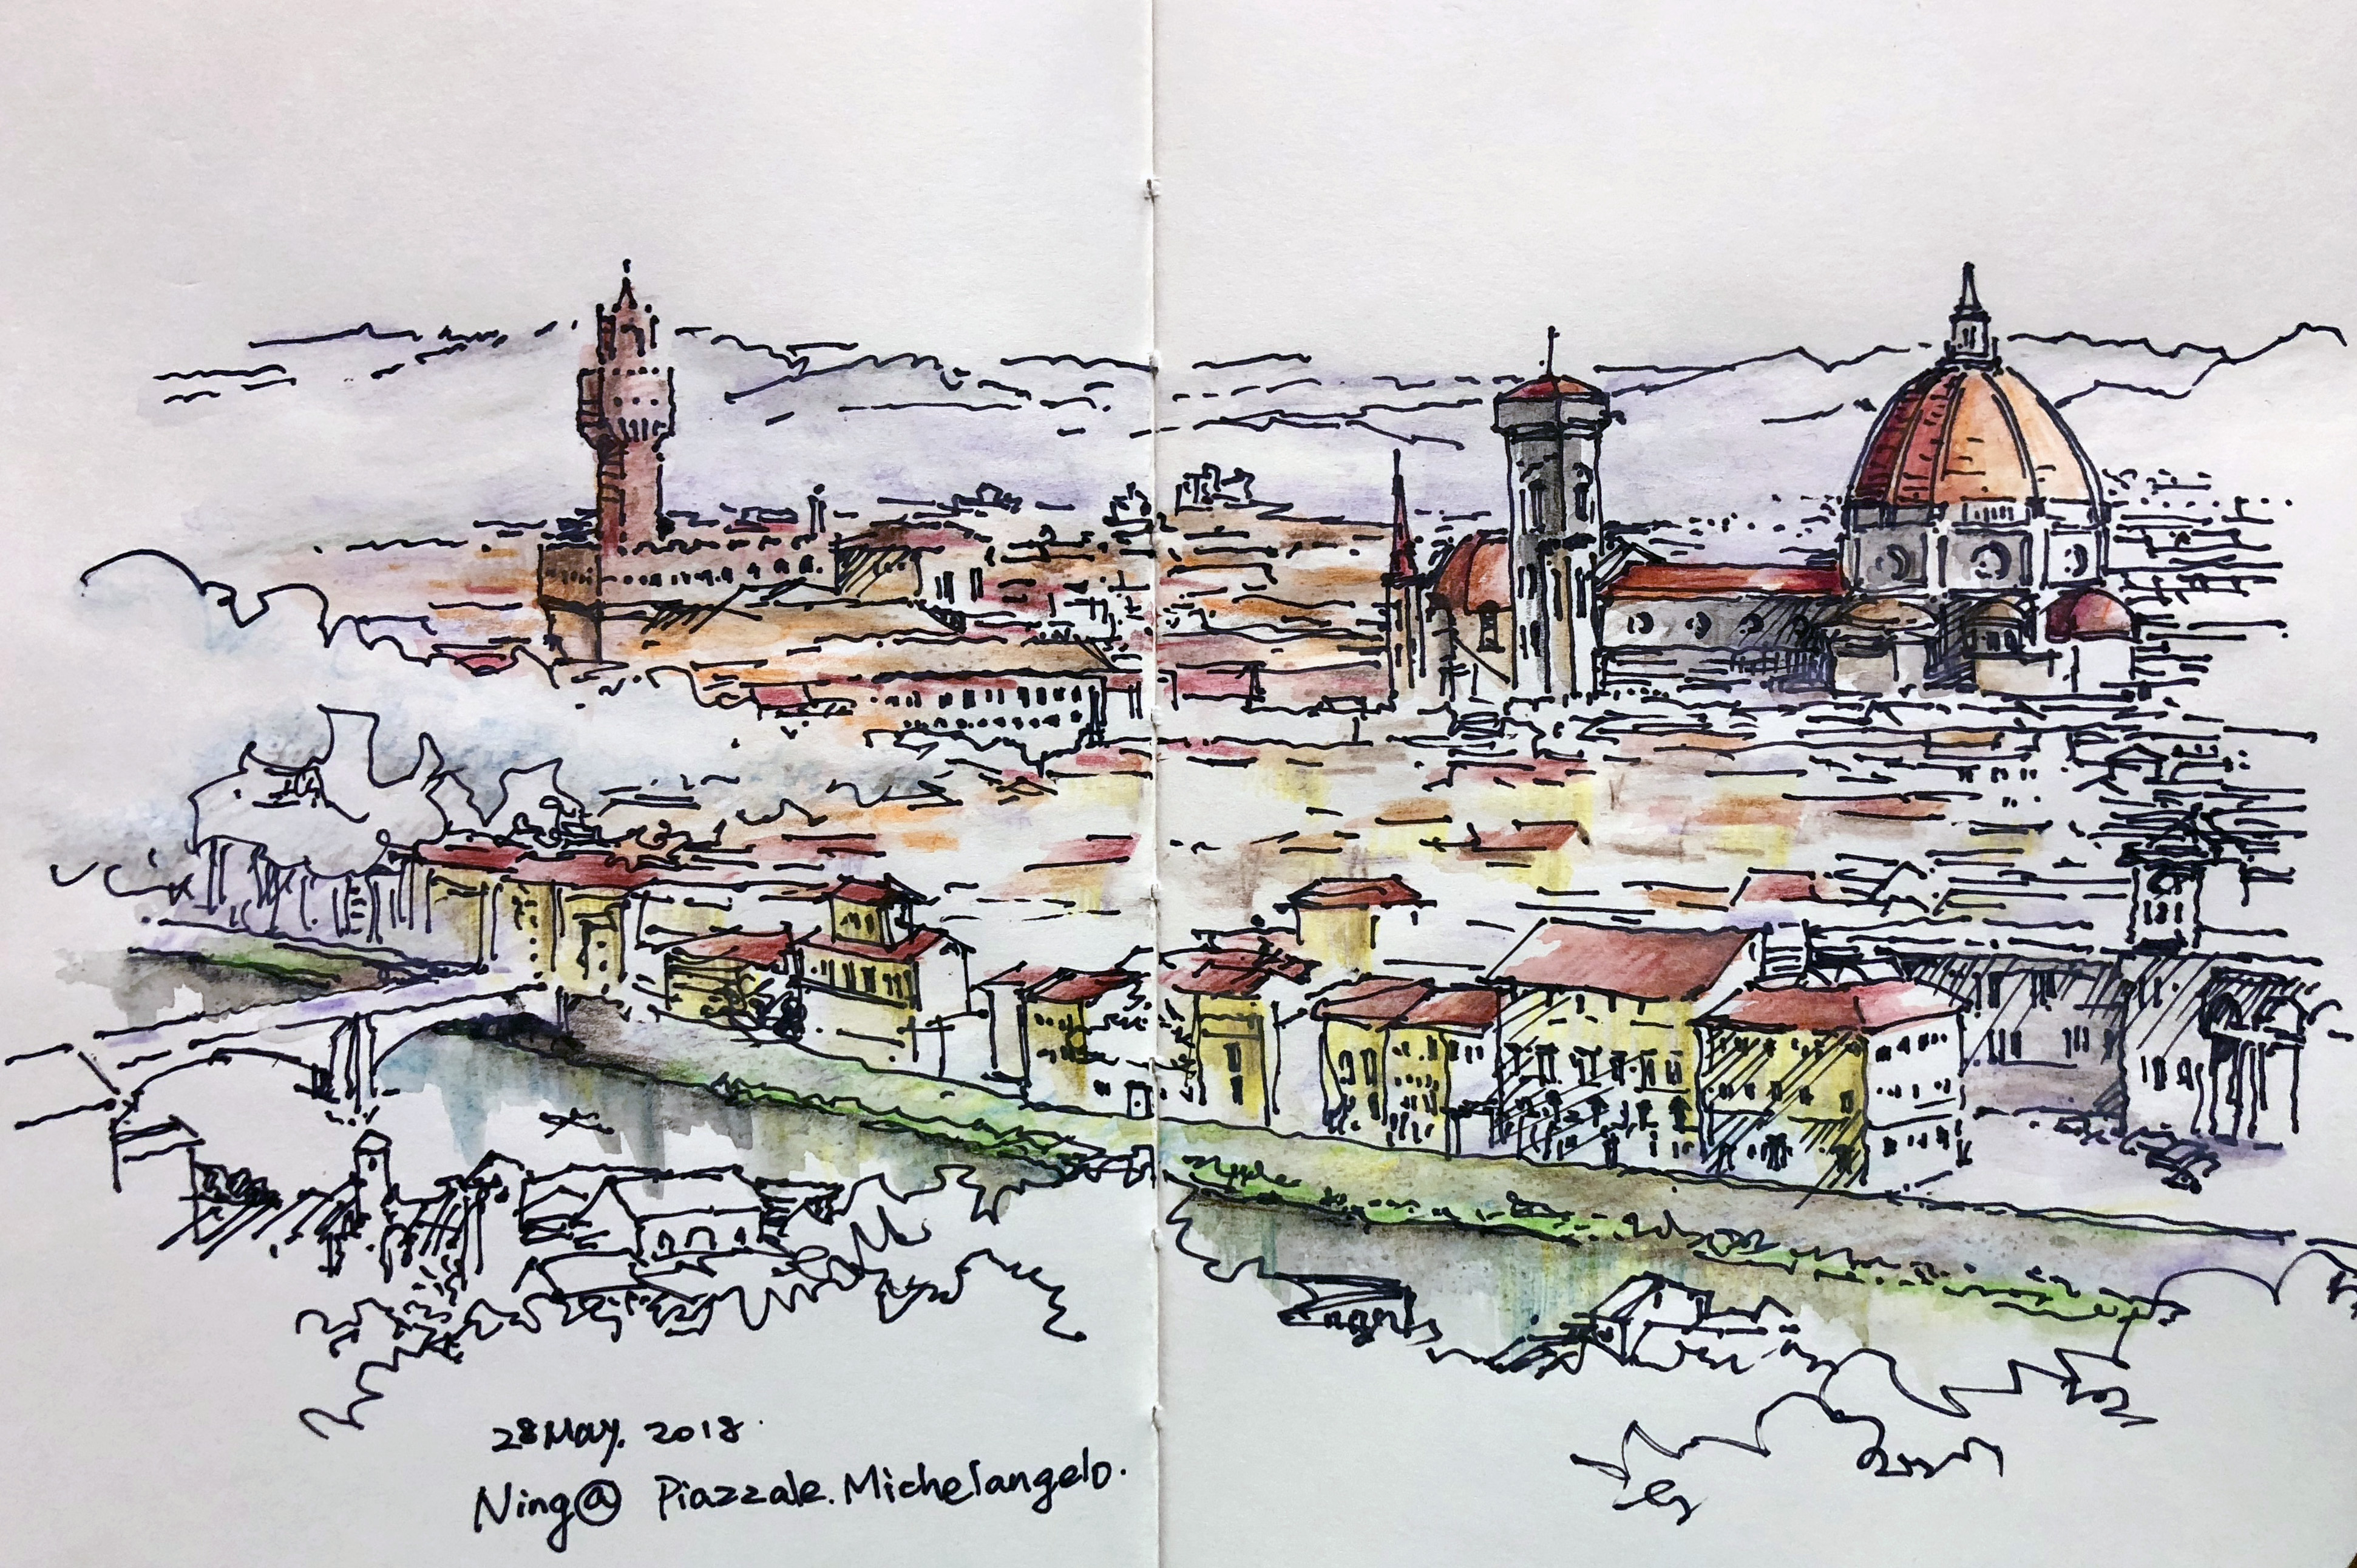 28 May. 2018.
Ning@ Piazzale. Michelangelo.